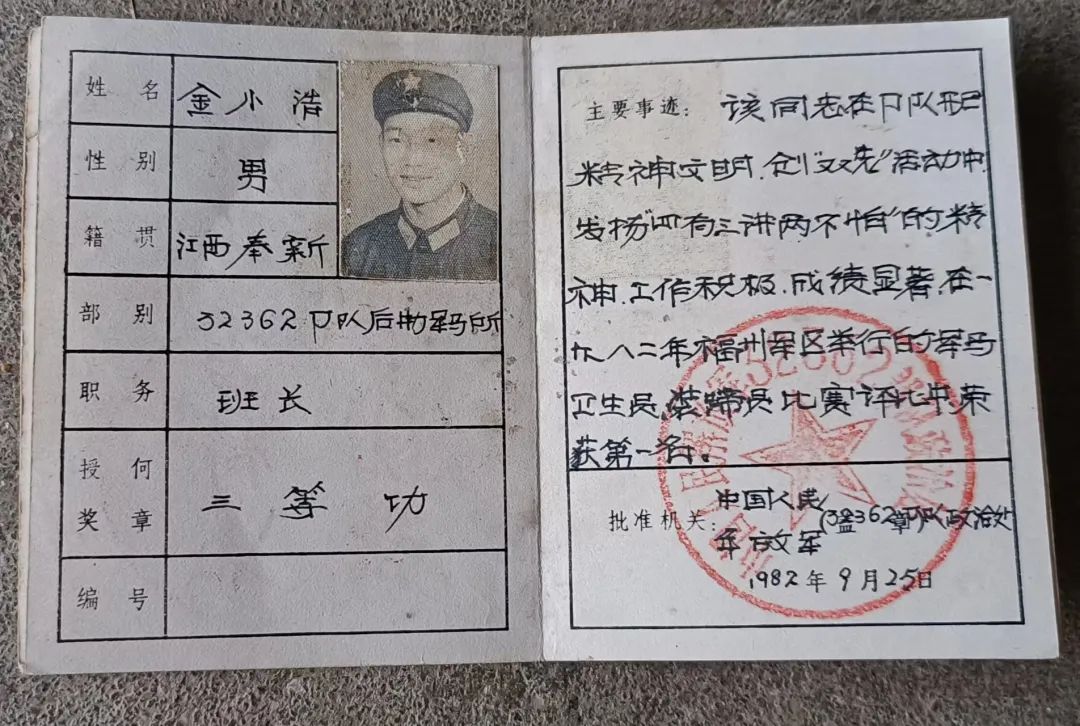 姓名 金小浩
性别 男
籍贯 江西奉新
部别 32362卩队后勤军马所
职务 班长
授何奖章 三等功
编号
主要事迹: 该同志在卩队
精神文明.创"双先"活动中.
发扬"四有三讲两不怕"的精
神.工作积极.成绩显著.在一
九八二年福州军区举行的军马
卫生员.装蹄员比赛评比中荣
获第一名。
批准机关: 中国人民
军 32362卩队政治处
(盖章)
1982年9月25日